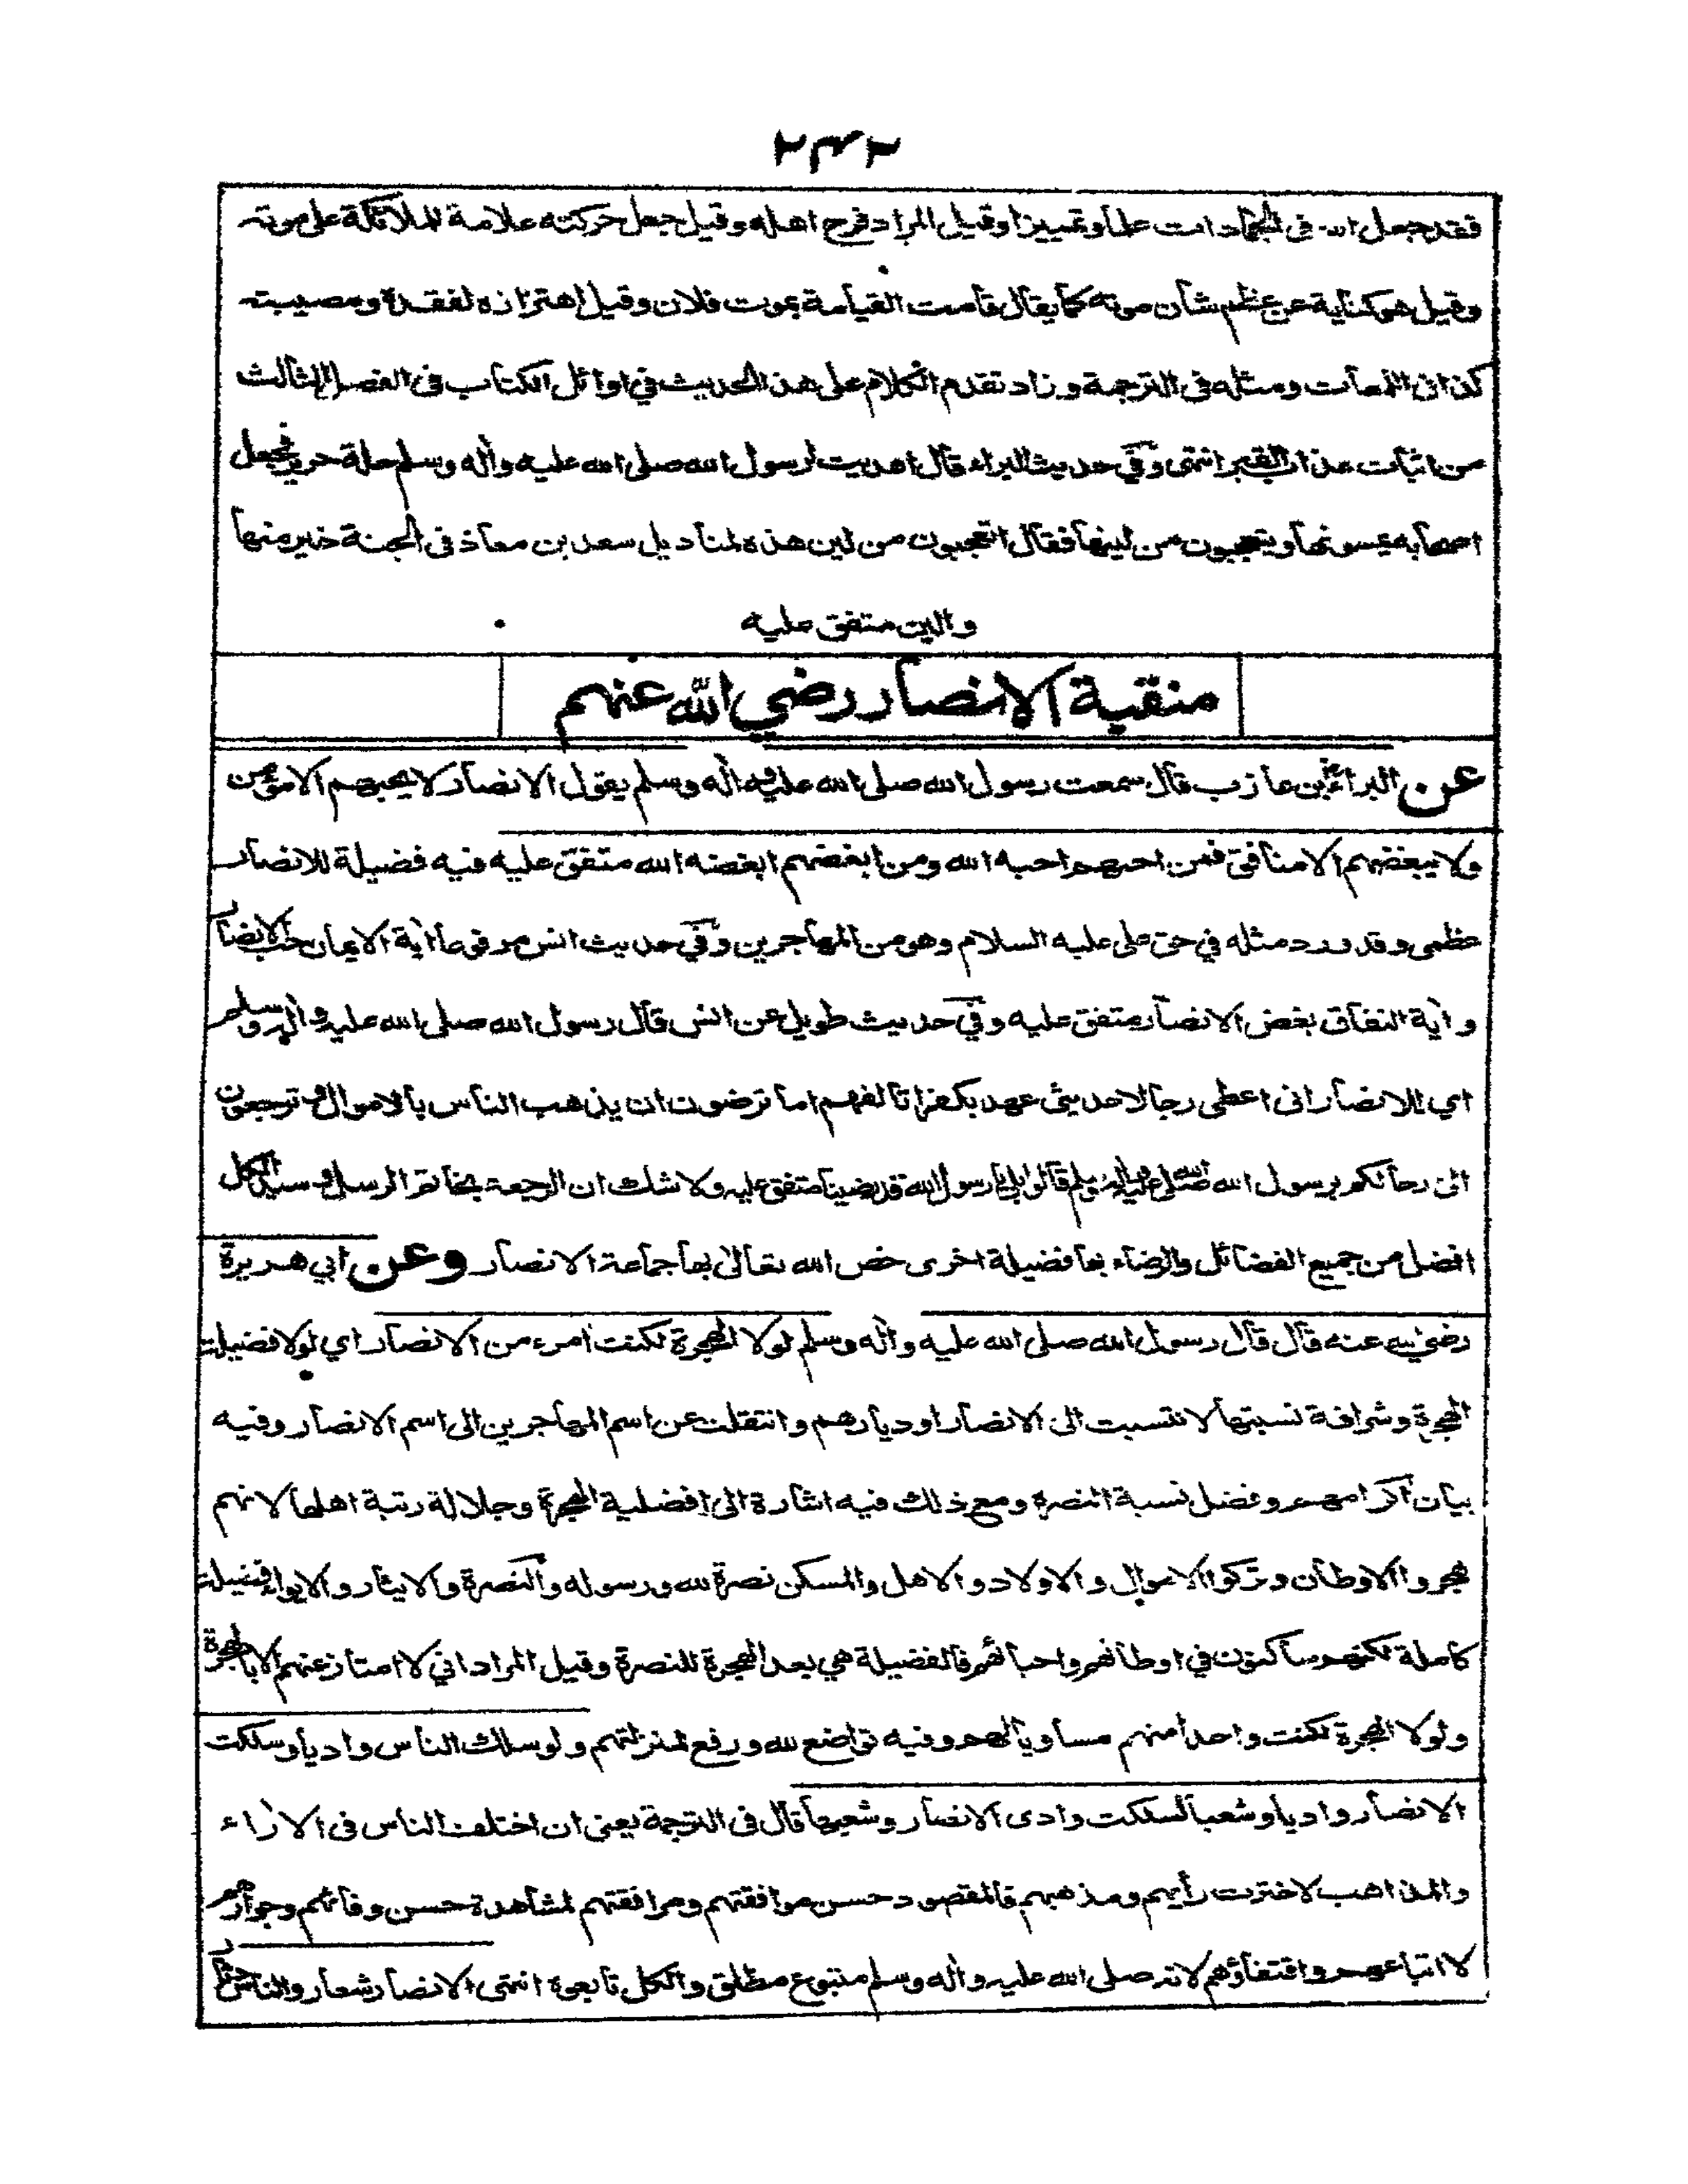 ٢٣٢
فقد جعل الله في الجمادات علما وتمييزا وقيل المراد فرح اهله وقيل جعل حركته علامة للملائكة على موته
وقيل هو كناية عن عظم شأن موته كما يقال قامت القيامة بموت فلان وقيل اهتزازه لفقده ومصيبته
كذا فى اللمعات ومثله فى الترجمة وزاد تقدم الكلام على هذا الحديث في اوائل الكتاب فى الفصل الثالث
من اثبات عذاب القبر انتهى وفي حديث البراء قال اهديت لرسول الله صلى الله عليه وأله وسلم حلة حرير فجعل
اصحابه يمسونها ويتعجبون من لينها فقال اتعجبون من لين هذه لمناديل سعد بن معاذ فى الجنة خير منها
والين متفق عليه
منقبة الانصار رضي الله عنهم
عن البراء بن عازب قال سمعت رسول الله صلى الله عليه وأله وسلم يقول الانصار لا يحبهم الا مؤمن
ولا يبغضهم الا منافق فمن احبهم احبه الله ومن ابغضهم ابغضه الله متفق عليه فيه فضيلة للانصار
عظمى وقد ورد مثله في حق على عليه السلام وهو من المهاجرين وفي حديث انس مرفوعا أية الايمان حب الانصار
وأية النفاق بغض الانصار متفق عليه وفي حديث طويل عن انس قال رسول الله صلى الله عليه وأله وسلم
اي للانصار انى اعطى رجالا حديثى عهد بكفر اتألفهم اما ترضون ان يذهب الناس بالاموال وترجعون
الى رحالكم برسول الله صلى الله عليه وأله وسلم قالوا بلى يا رسول الله قد رضينا متفق عليه ولا شك ان الرجعة بخاتم الرسل وسيد الكل
افضل من جميع الفضائل والرضاء بها فضيلة اخرى خص الله تعالى بها جماعة الانصار وعن ابي هريرة
رضي الله عنه قال قال رسول الله صلى الله عليه وأله وسلم لولا الهجرة لكنت امرء من الانصار اي لولا فضيلة
الهجرة وشرافة نسبتها لانتسبت الى الانصار او ديارهم وانتقلت عن اسم المهاجرين الى اسم الانصار وفيه
بيان اكرامهم وفضل نسبة النصرة ومع ذلك فيه اشارة الى افضلية الهجرة وجلالة رتبة اهلها لانهم
هجروا الاوطان وتركوا الاموال والاولاد والاهل والمسكن نصرة لله ورسوله والنصرة والايثار والايواء فضيلة
كاملة لكنهم ساكنون في اوطانهم واحبائهم فالفضيلة هي بعد الهجرة للنصرة وقيل المراد اني لا امتاز عنهم الا بالهجرة
ولولا الهجرة لكنت واحدا منهم مساويا لهم وفيه تواضع لله ورفع لمنزلتهم ولو سلك الناس واديا وسلكت
الانصار واديا وشعبا لسلكت وادى الانصار وشعبها قال فى الترجمة يعنى ان اختلف الناس فى الاراء
والمذاهب لاخترت رأيهم ومذهبهم فالمقصود حسن موافقتهم ومرافقتهم لمشاهدة حسن وفائهم وجوارهم
لا اتباعهم واقتفاؤهم لانه صلى الله عليه وأله وسلم متبوع مطلق والكل تابعوه انتهى الانصار شعار والناس دثار